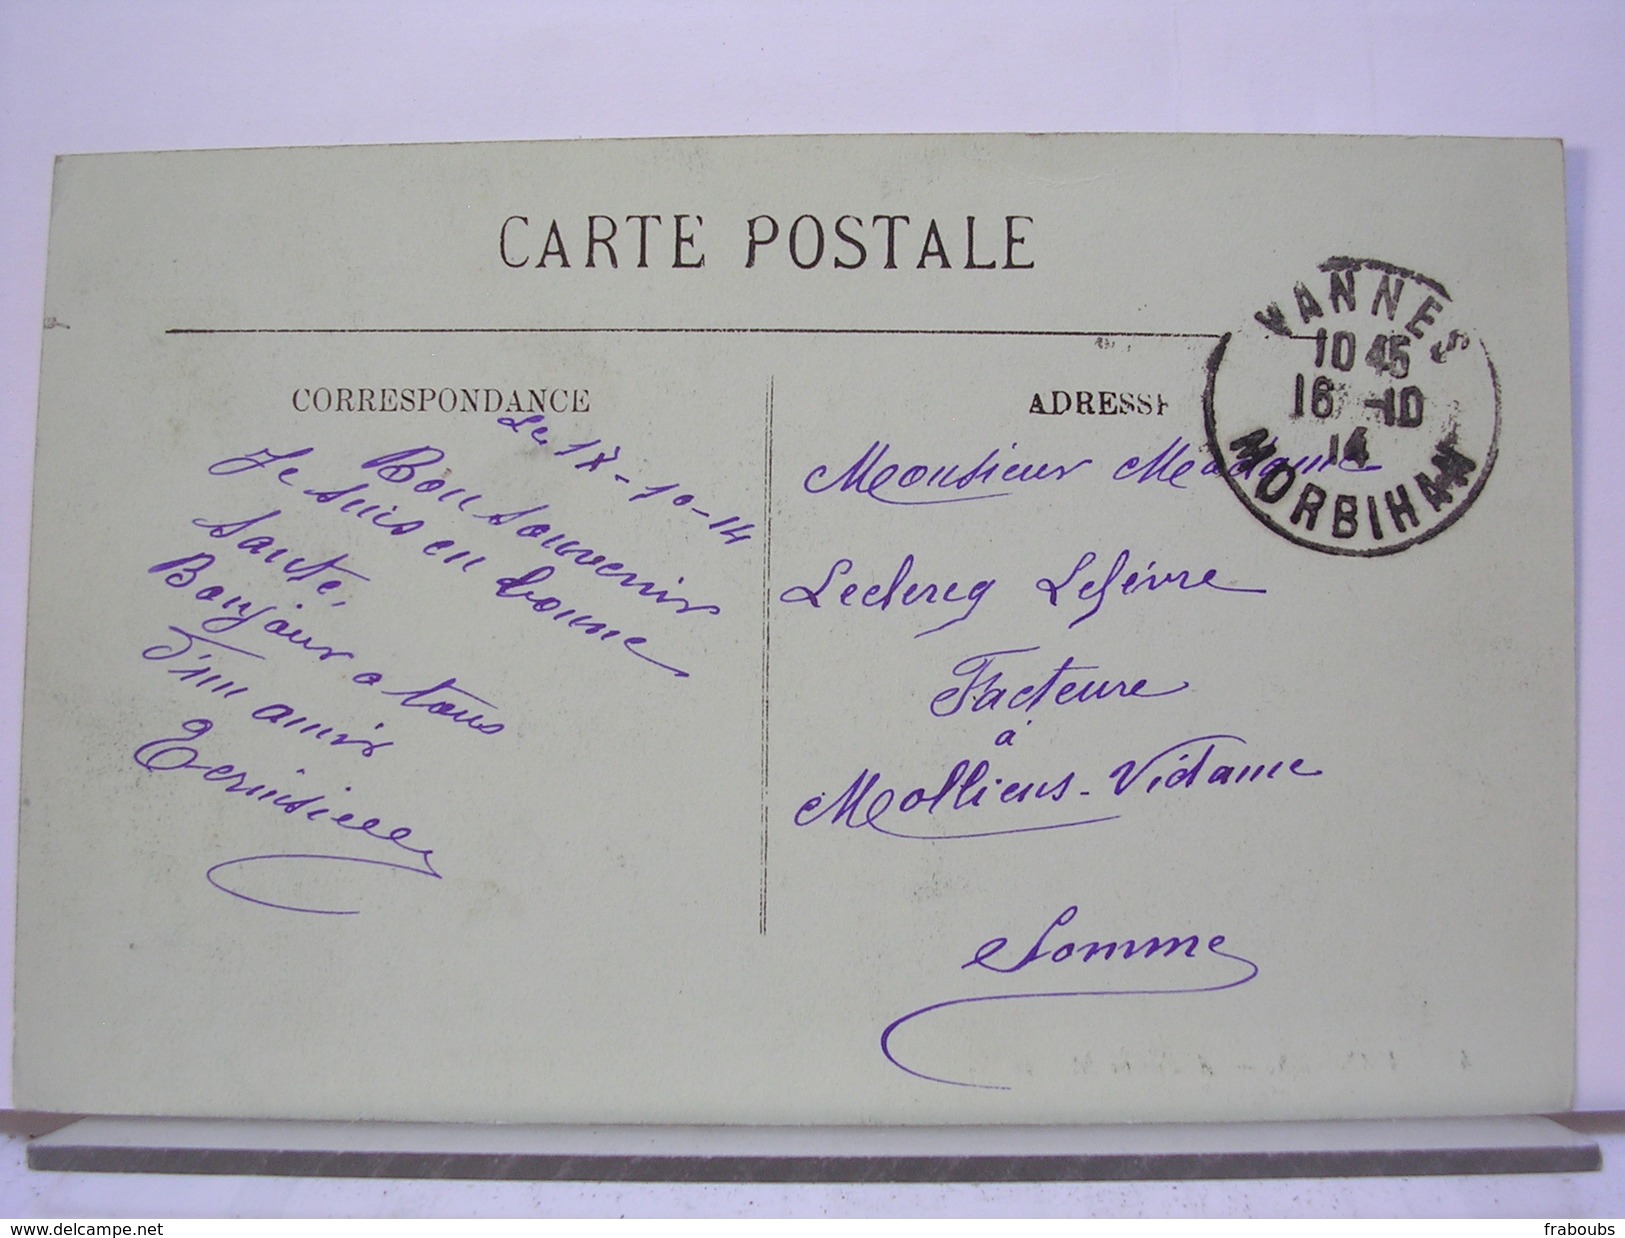 CARTE POSTALE
CORRESPONDANCE
Le 18-10-14
Bon souvenir
Je suis en bonne
Santé,
Bonjour a tous
D'un amir
ADRESSE
Monsieur Madame
Leclercq Lefévre
Facteure
à
Molliens-Vidame
Somme
VANNES
10 45
16 -10
14
MORBIHAN
www.delcampe.net
fraboubs